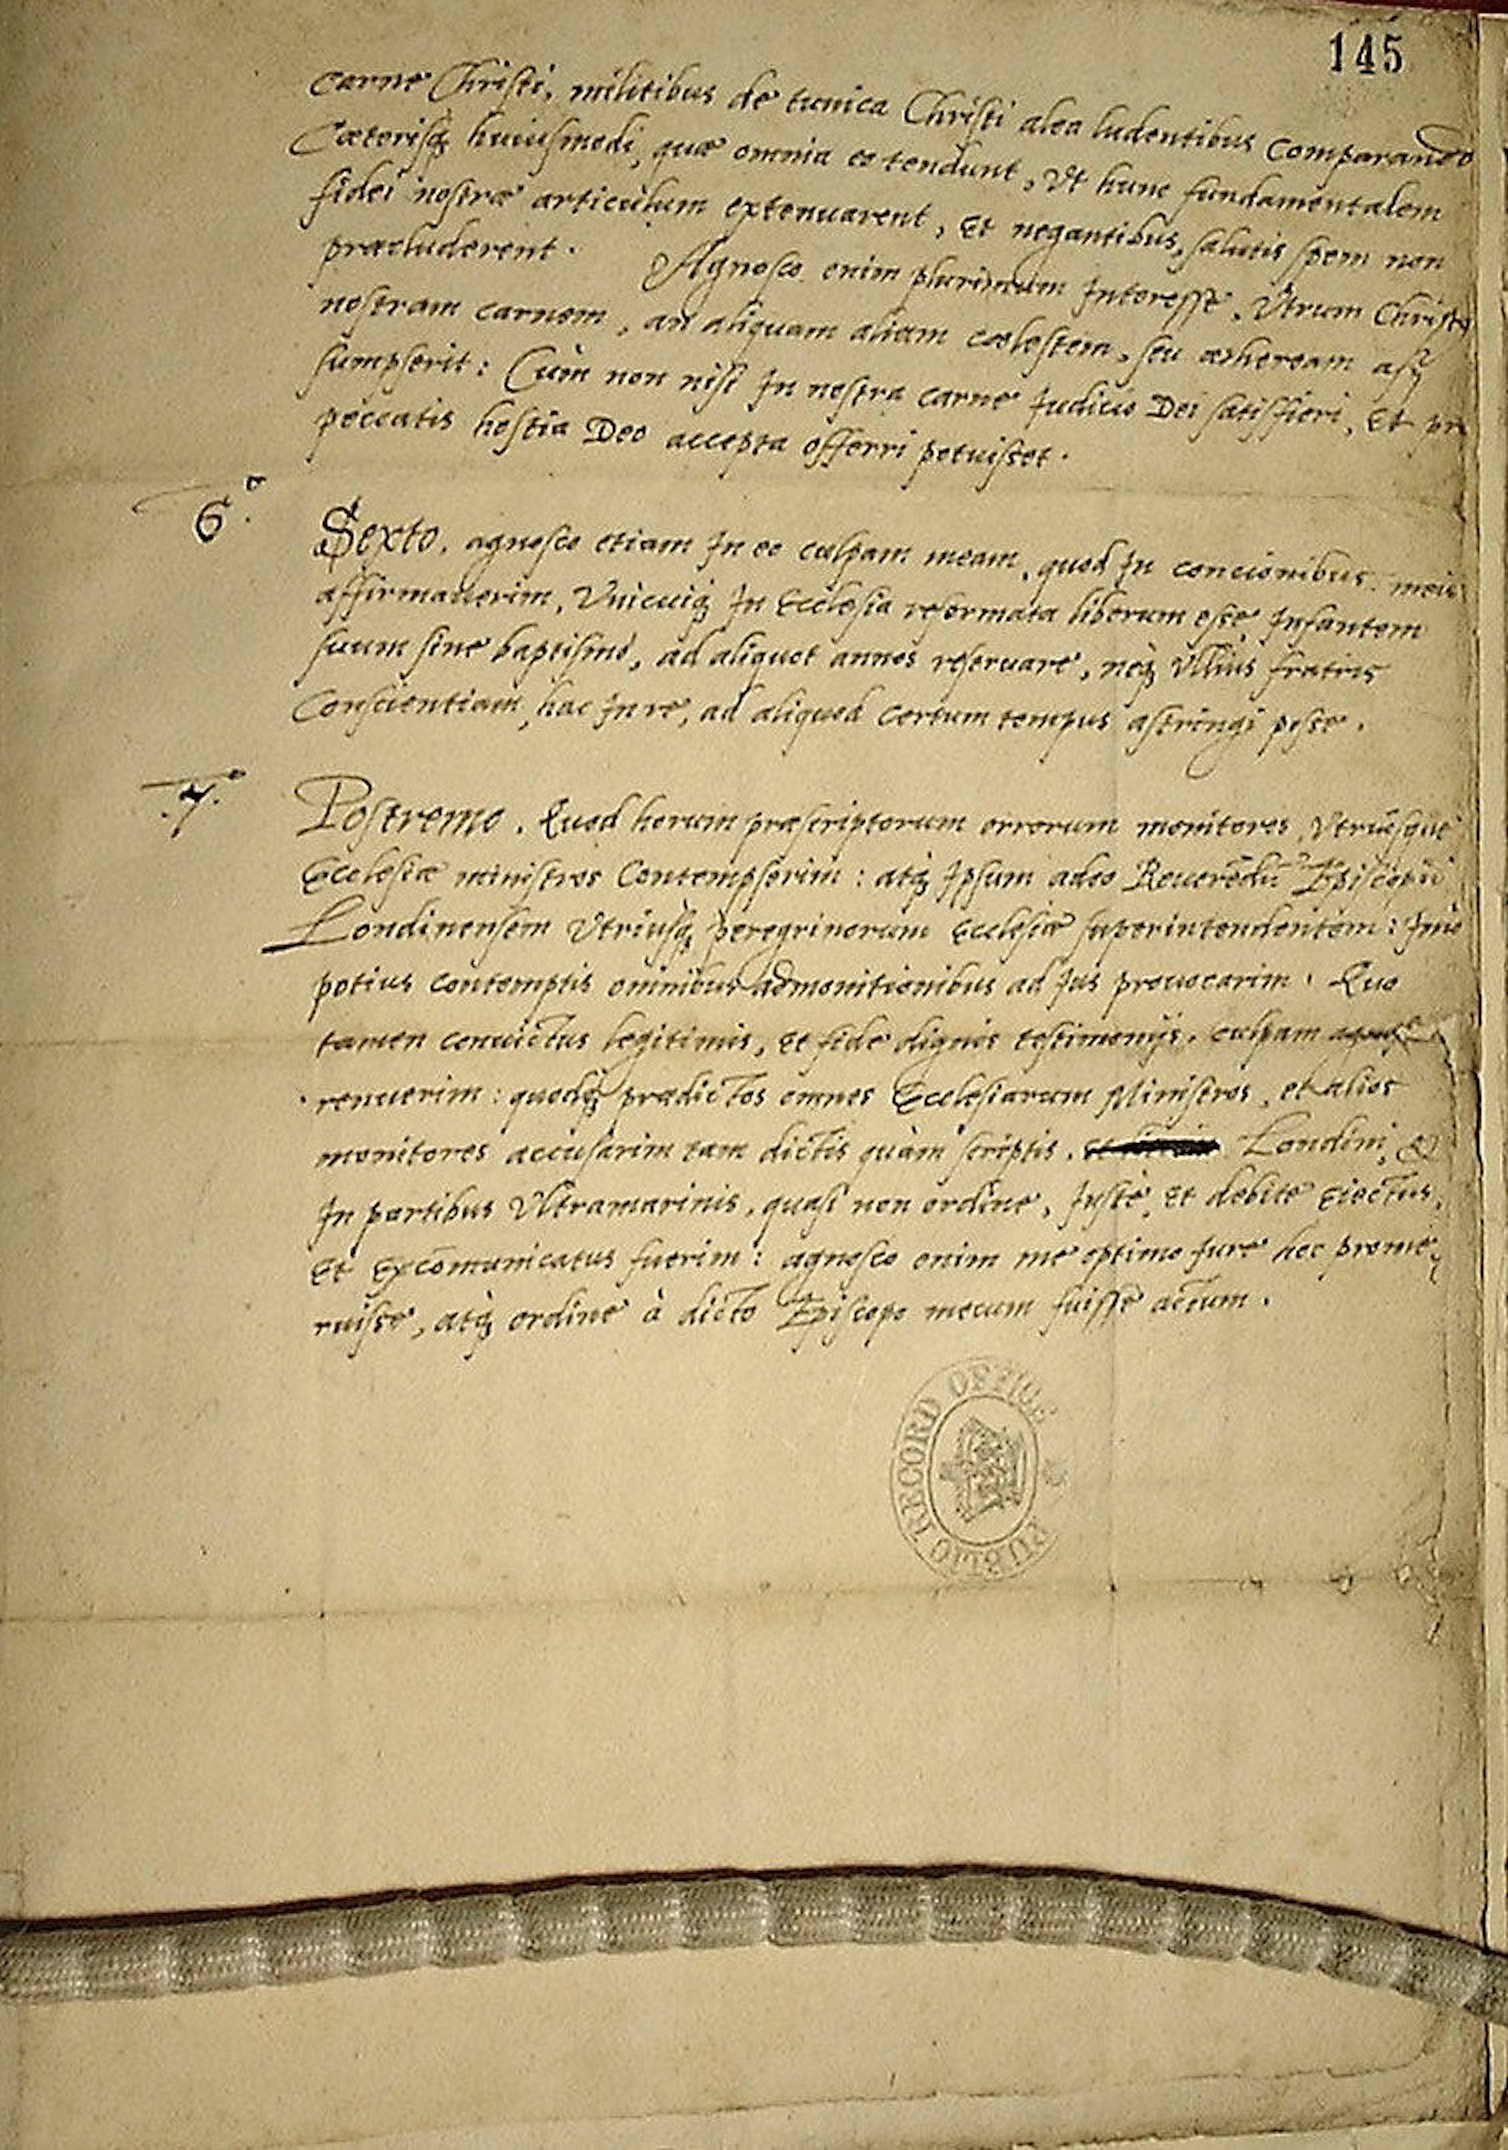 145
carne Christi, militibus de tunica Christi alea ludentibus comparando
Cæterisq; huiusmodi, quæ omnia eo tendunt, Vt hunc fundamentalem
fidei nostræ articulum extenuarent, Et negantibus, salutis spem non
præcluderent. Agnosco enim plurimum Interesse, Vtrum Christus
nostram carnem, an aliquam aliam cœlestem, seu ætheream as„
sumpserit: Cùm non nisi In nostra carne Judicio Dei satisfieri, Et pro
peccatis hostia Deo accepta offerri potuisset.
6.º
Sexto. agnosco etiam In eo culpam meam, quod In concionibus meis
affirmauerim, Vnicuiq; In Ecclesia reformata liberum esse, Infantem
suum sine baptismo, ad aliquot annos reseruare, neq; Vllius fratris
Conscientiam, hac In re, ad aliquod certum tempus astringi posse.
.7.º
Postremo. Quod horum præscriptorum errorum monitores, Vtriusque
Ecclesiæ ministros Contempserim: atq; Ipsum adeo Reuerēdū Episcopū
Londinensem Vtriusq; peregrinorum Ecclesiæ superintendentem: Imò
potius contemptis omnibus admonitionibus ad Jus prouocarim. Quo
tamen conuictus legitimis, Et fide dignis testimonijs, culpam
renuerim: quodq; prædictos omnes Ecclesiarum Ministros, et alios
monitores accusarim tam dictis quàm scriptis. Londini, &
In partibus Vltramarinis, quasi non ordine, Justè, Et debite Eiectus,
Et Excōmunicatus fuerim: agnosco enim me optimo Jure hoc prome„
ruisse, atq; ordine à dicto Episcopo mecum fuisse actum.
PUBLIC RECORD OFFICE